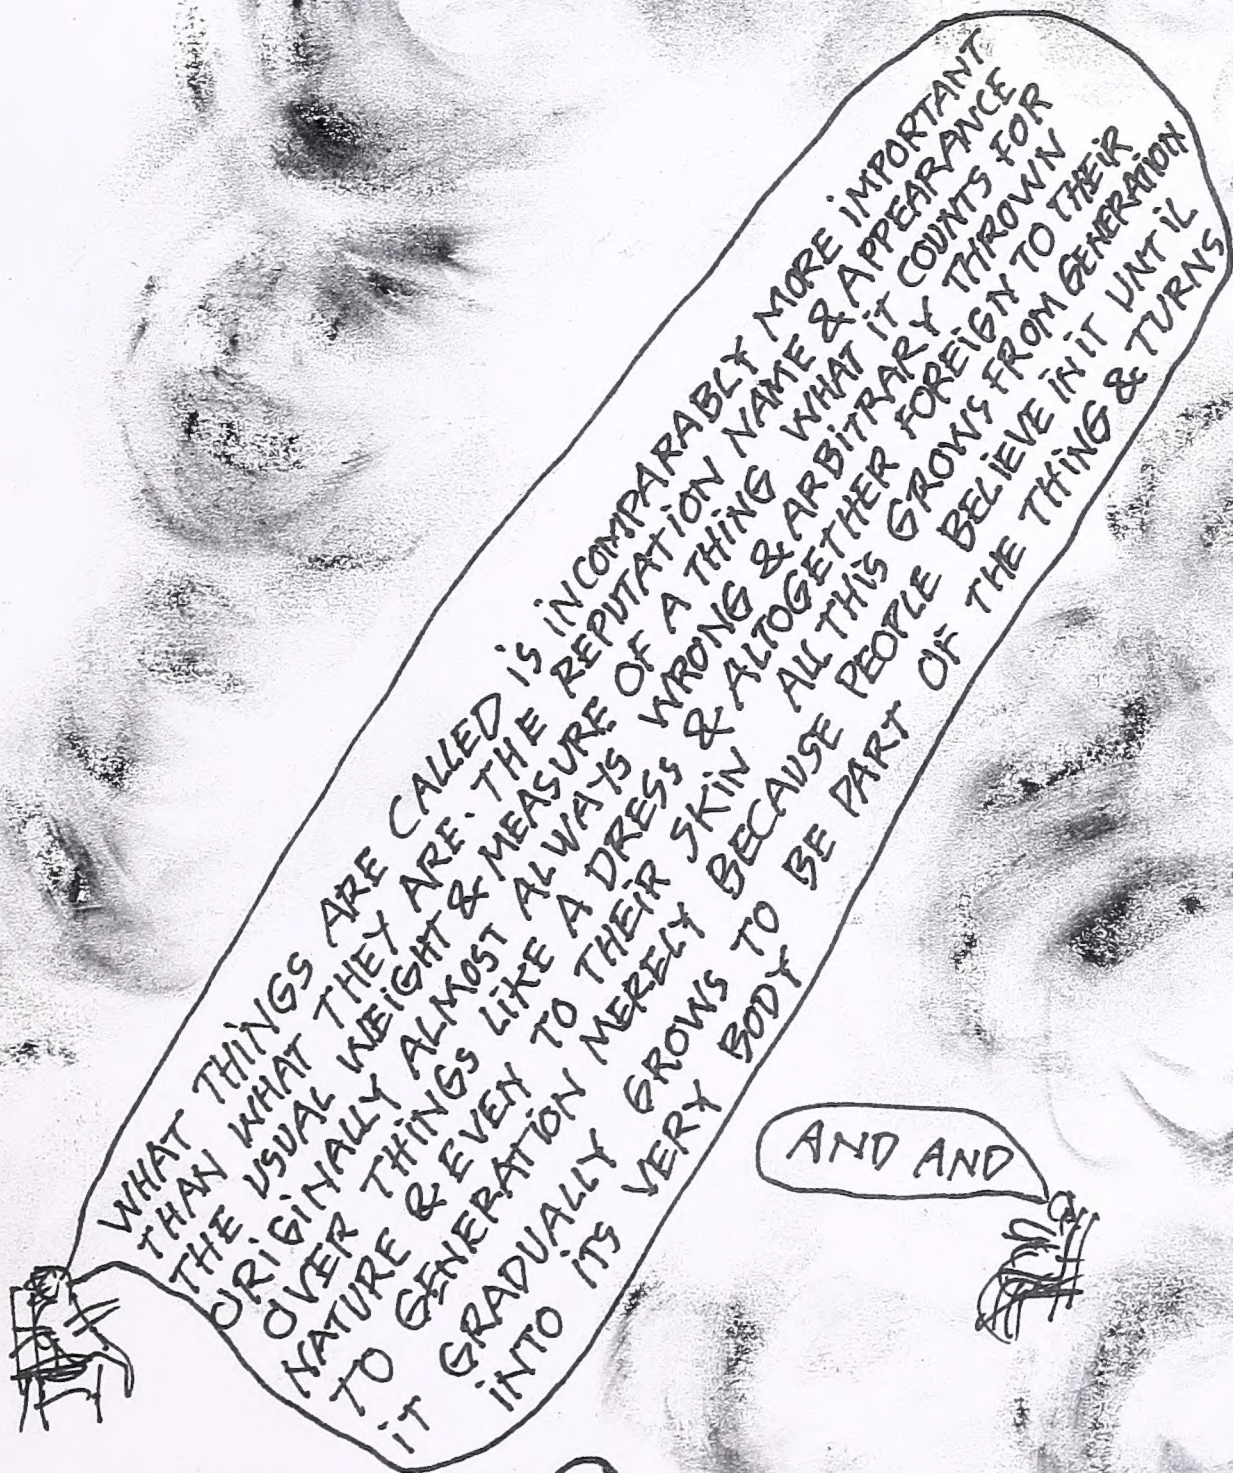 WHAT THINGS ARE CALLED iS iNCOMPARABLY MORE iMPORTANT
THAN WHAT THEY ARE. THE REPUTATiON NAME & APPEARANCE
THE USUAL WEiGHT & MEASURE OF A THiNG WHAT iT COUNTS FOR
ORiGiNALLY ALMOST ALWAYS WRONG & ARBiTRARY THROWN
OVER THiNGS LiKE A DRESS & ALTOGETHER FOREiGN TO THEiR
NATURE & EVEN TO THEiR SKiN ALL THiS GROWS FROM GENERATiON
TO GENERATiON MERELY BECAUSE PEOPLE BELiEVE iN iT UNTiL
iT GRADUALLY GROWS TO BE PART OF THE THiNG & TURNS
iNTO iTS VERY BODY
AND AND